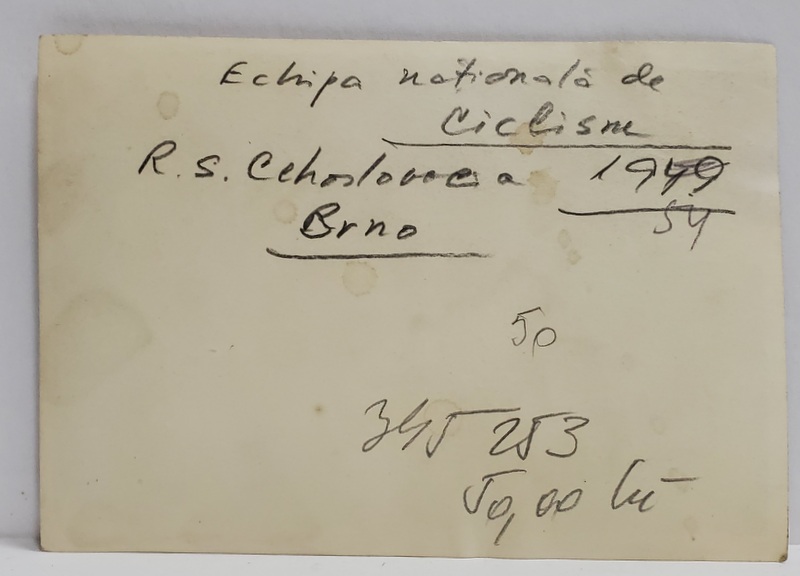 Echipa națională de
Ciclism
R. S. Cehoslovacia 1949
Brno 54
50
345 253
50,00